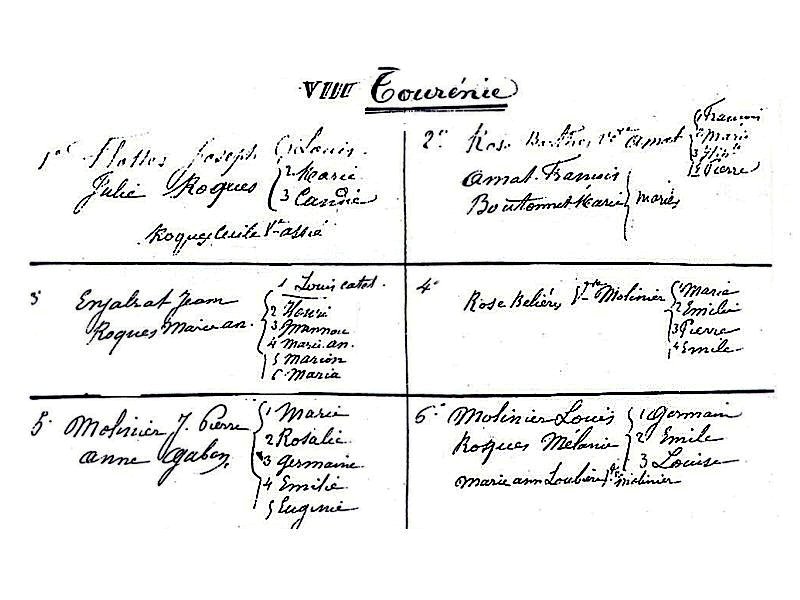 VIII Tourénie
1º Flottes Joseph 1 Louis.
Julie Roques 2 Marie
3 Candie
Roques Cecile Vve assié
2º Rose Vve Amat 1 Francois
2 Marie
3
4 Pierre
Amat Francois
Boutonnet Marie } mariés
3º Enjalrat Jean
Roques Marie an.
1 Louis catet.
2 Henri
3
4 Marie an.
5 Marion
6 Maria
4º Rose Belières Vve Molinier
1 Marie
2 Emilie
3 Pierre
4 Emile
5º Molinier J. Pierre
anne Gaben
1 Marie
2 Rosalie
3 germaine
4 Emilie
5 Eugenie
6º Molinier Louis 1 Germain
Roques Mélanie 2 Emile
3 Louise
Marie ann Loubière Vve Molinier